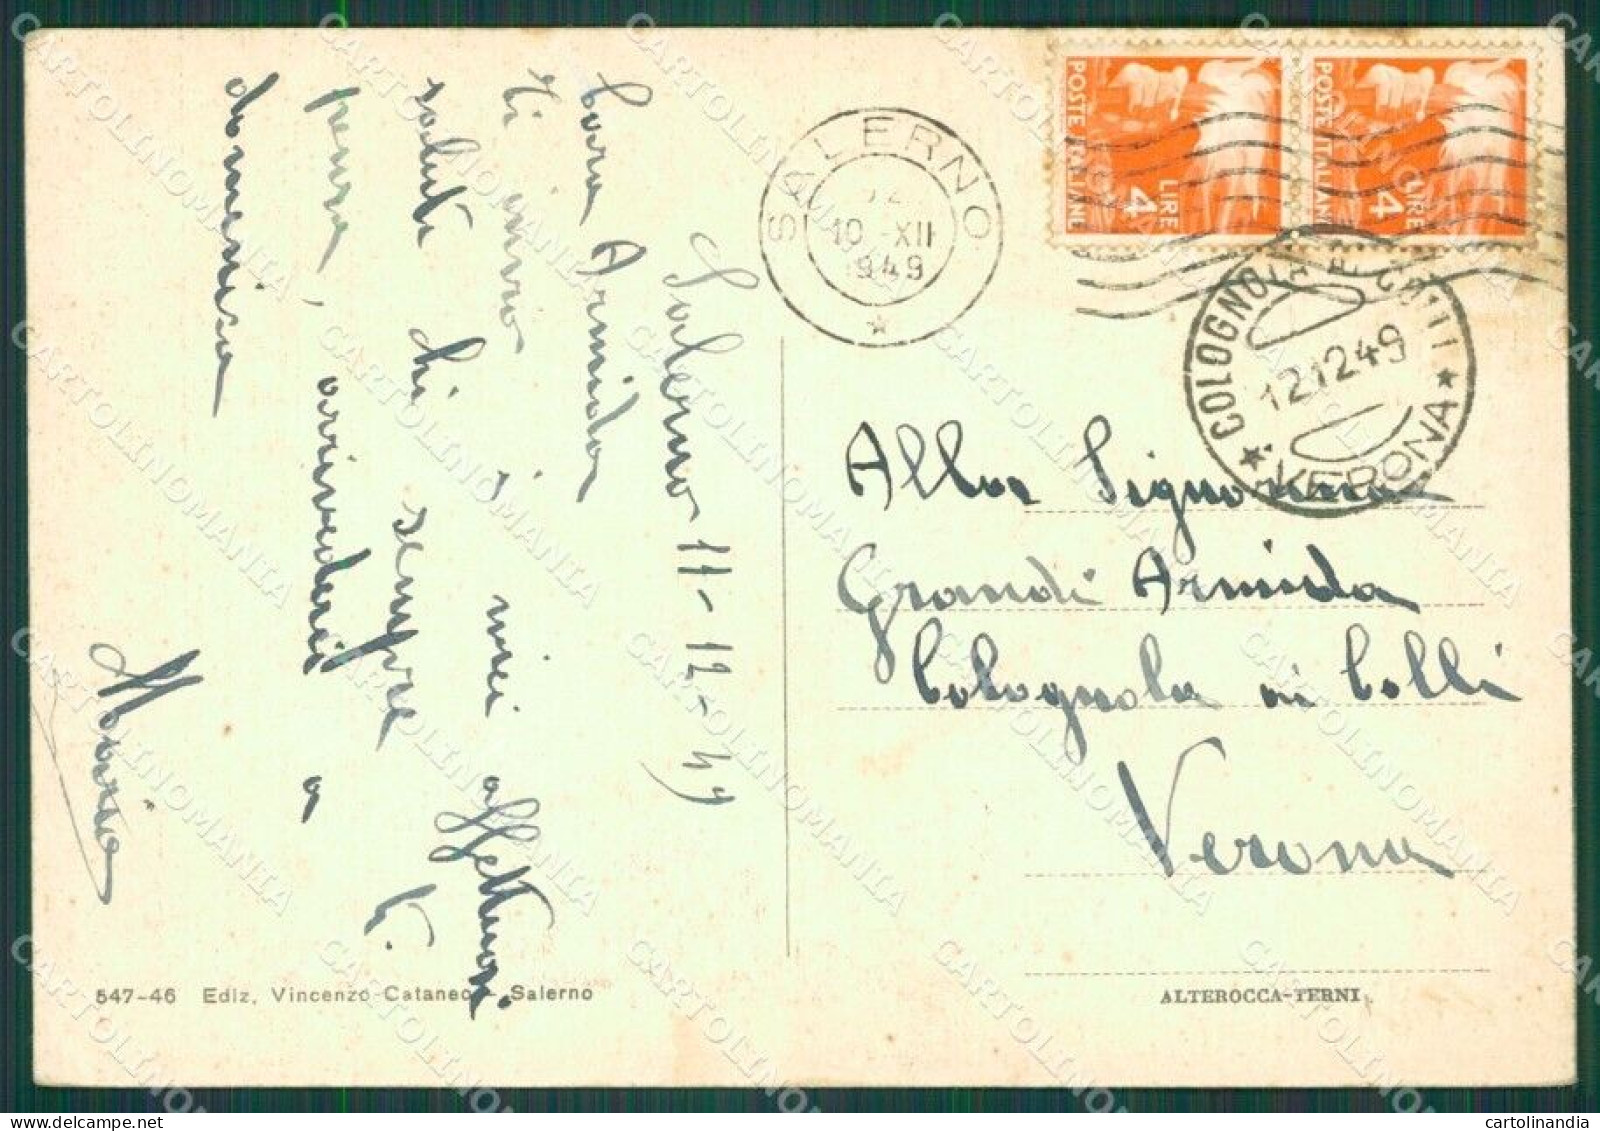 Salerno 11-12-49
Cara Armida
Ti invio i miei affettuosi
saluti chi sempre t.
pensa, arrivederci a
domenica
Maria
SALERNO
10 -XII
1949
POSTE ITALIANE
LIRE
4
POSTE ITALIANE
LIRE
4
COLOGNOLA AI COLLI
12.12.49
VERONA
Alla Signorina
Grandi Armida
Colognola ai Colli
Verona
547-46 Ediz. Vincenzo Cataneo - Salerno
ALTEROCCA-TERNI
CARTOLINOMANIA
cartolinandia